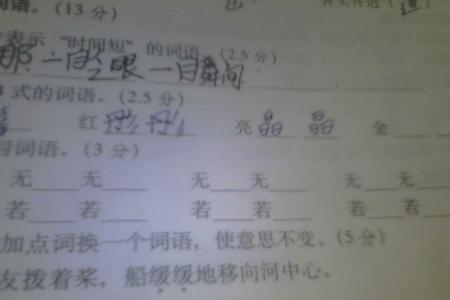 词语。(13分)
表示“时间短”的词语。(2.5分)
那 一 眼 一 瞬间
式的词语。(2.5分)
红彤彤 亮晶晶 金
写词语。(3分)
无____无____ 无____无____ 无____无____
若____若____ 若____若____ 若____若____
加点词换一个词语，使意思不变。(5分)
友拨着桨，船缓缓地移向河中心。